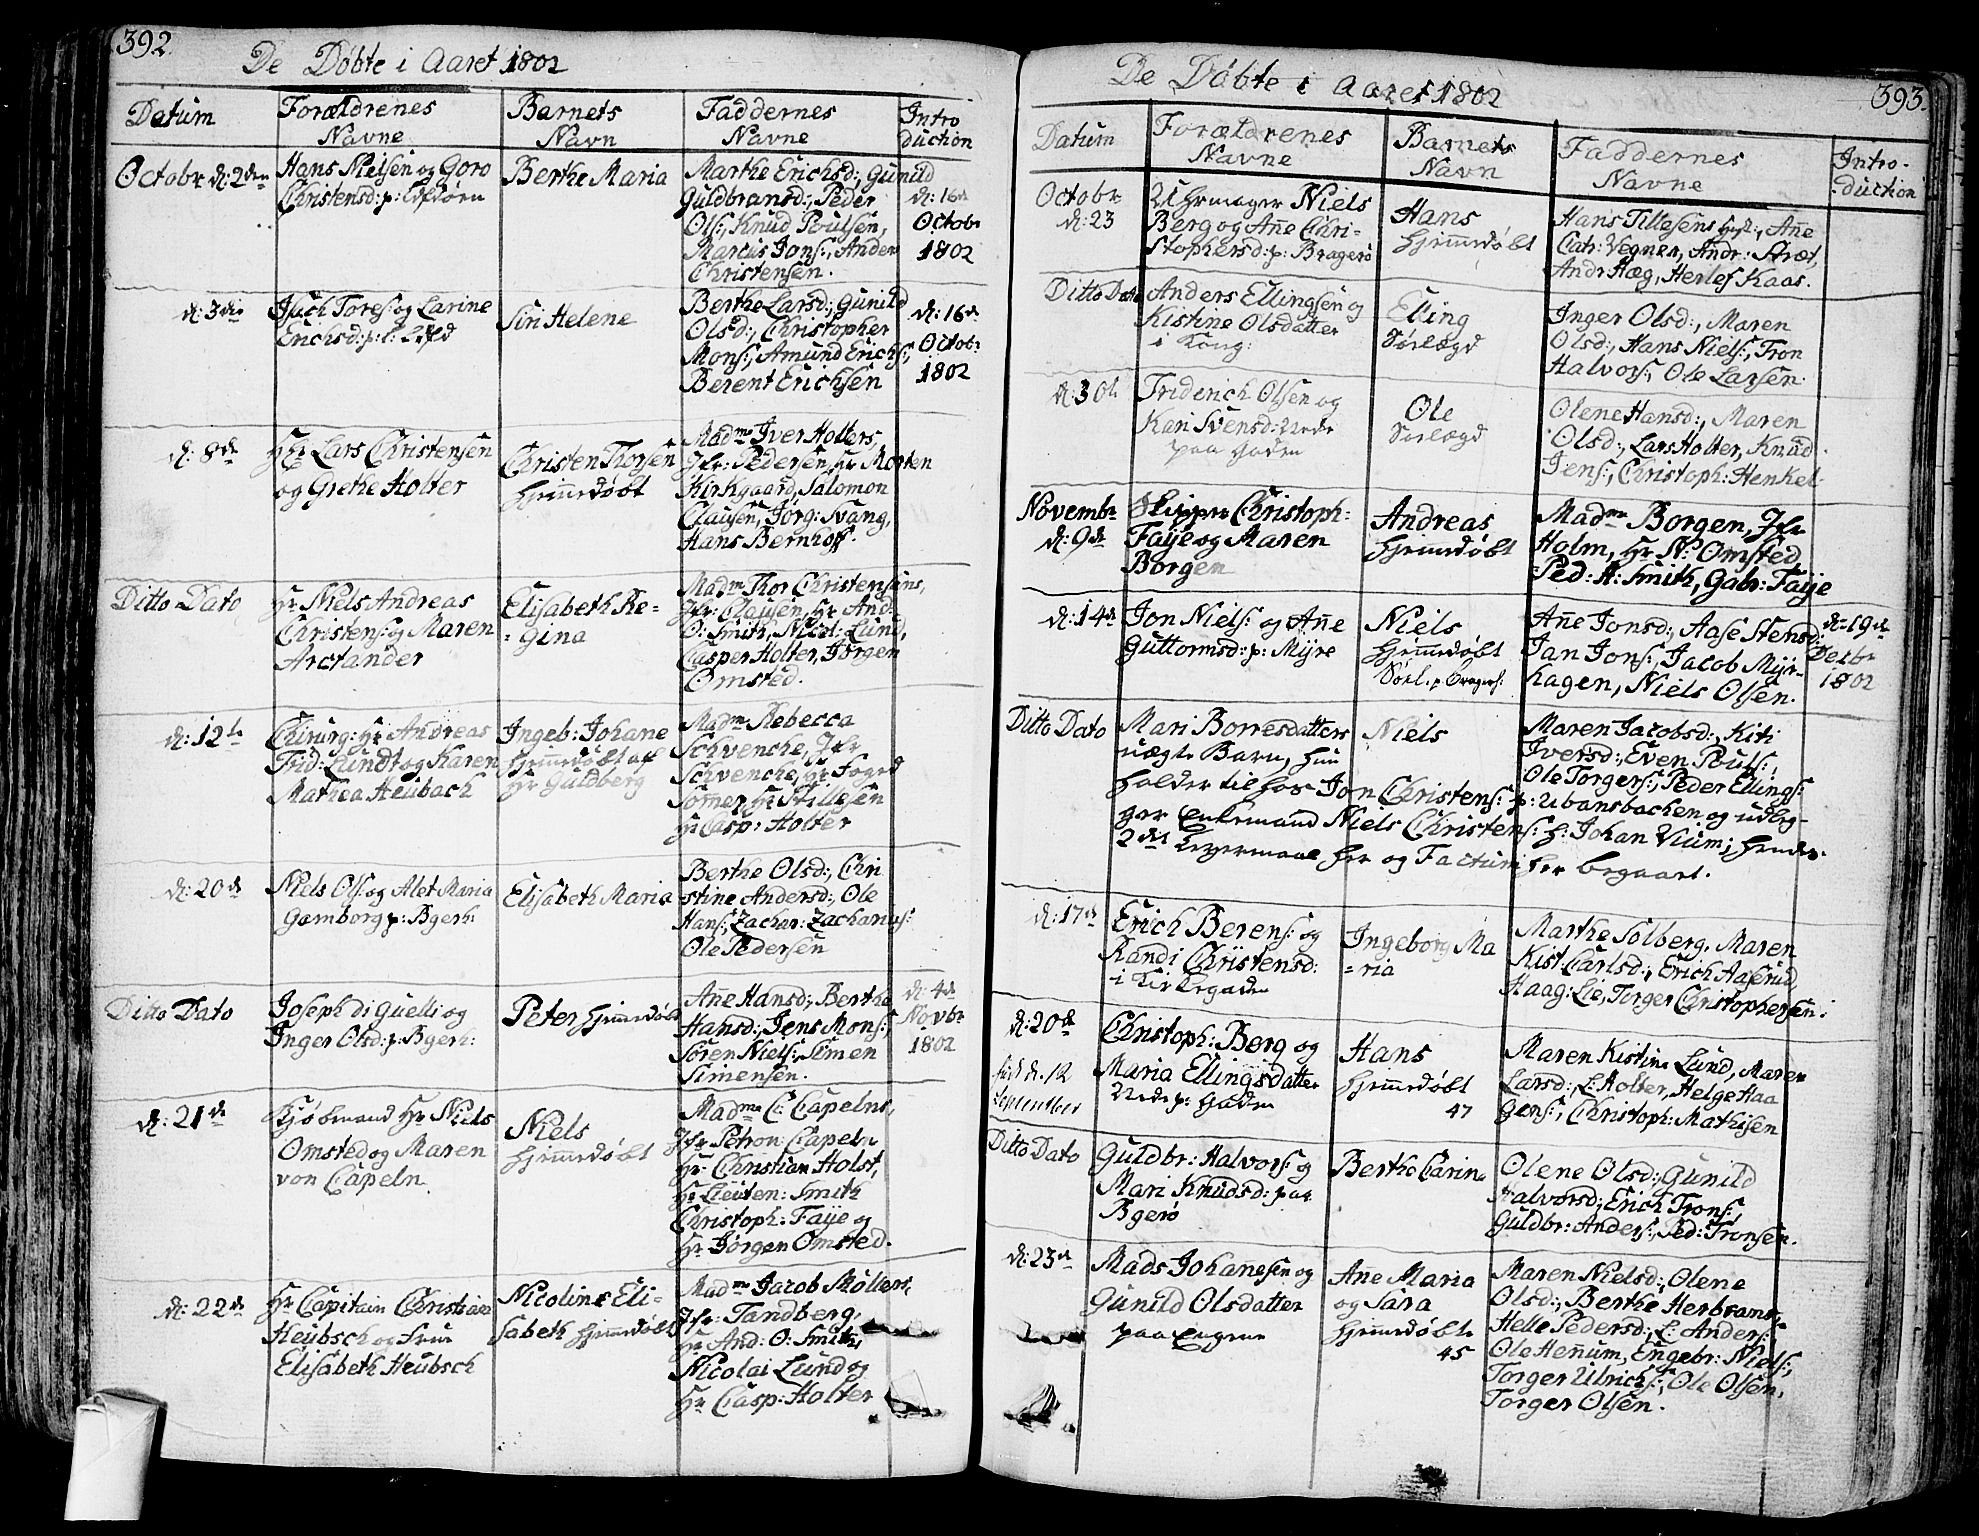 392.
De Döbte i Aaret 1802
Datum
Forældrenes
Navne
Barnets
Navn
Faddernes
Navne
Intro
duction
Octobr d: 2den
Hans Nielsen og Goro
Christensd: p:
Berthe Maria
Marthe Erichsd:, Gunild
Guldbransd:, Peder
Ols:, Knud Poulsen,
Marcus Jons:, Anders
Christensen.
d: 16de
Octobr
1802
d: 3die
Isach Tores: og Larine
Erichsd: p:
Siri Helene
Berthe Larsd:, Gunild
Olsd:, Christopher
Mons:, Amund Erichs:,
Berent Erichsen
d: 16de
Octobr
1802
d: 8de
Hr Lars Christensen
og Grethe Holter
Christen Thorsen
hjemedøbt
Madme Iver Holters,
Jfr: Pedersen, Hr Morten
Kirkgaard, Salomon
Clausen, Jörg: Svang,
Hans Bernhoff.
Ditto Dato
Hr Niels Andreas
Christens: og Maren
Arctander
Elisabeth Re-
=gina
Madme Thor Christensens,
Jfr: Clausen, Hr And:
O: Smith, Nicol: Lund,
Casper Holter, Jörgen
Omsted.
d: 12te
Chirurg: Hr Andreas
Frid: Lundt og Karen
Mathea Heubach
Ingeb: Johane
hjemedøbt af
Hr Guldberg
Madme Rebecca
Schvencke, Jfr
Schvencke, Hr Foged
Sommer, Hr Tillesen
Hr Casp: Holter
d: 20de
Niels Ols: og Alet Maria
Gamborg p: Bgerh:
Elisabeth Maria
Berthe Olsd:, Chri
stine Andersd:, Ole
Hans:, Zachar: Zacharias:
Ole Pedersen
Ditto Dato
Joseph di Guelli og
Inger Olsd: p: Bgerh:
Peter hjemedøbt
Ane Hansd:, Berthe
Hansd:, Jens Mons:,
Sören Niels:, Simen
Simensen.
d: 4de
Novbr
1802
d: 21de
Kjøbmand Hr Niels
Omsted og Maren
von Capeln
Niels
hjemedøbt
Madme C: Capelns,
Jfr Petron: Capeln
Hr Christian Holst,
Hr Lieuten: Smith
Christoph: Faije og
Hr Jörgen Omsted.
d: 22de
Hr Capitain Christian
Heubsch og Frue
Elisabeth Heubsch
Nicoline Eli-
sabeth hjemedøbt
Madme Jacob Möllers,
Jfr: Tandberg,
Hr And: O: Smith,
Nicolai Lund og
Hr Casp: Holter
393.
De Döbte i Aaret 1802
Datum
Forældrenes
Navne
Barnets
Navn
Faddernes
Navne
Intro-
duction
Octobr
d: 23
Uhrmager Niels
Berg og Ane Chri-
stophersd: p: Bragerø
Hans
hjemedøbt
Hans Tillesens, Ane
Catr: Vegner, Andr: Stræt,
Andr Hæg, Herlef Kaas.
Ditto Dato
Anders Ellingsen og
Kistine Olsdatter
i Kong:
Elling
Sørlægd
Inger Olsd:, Maren
Olsd:, Hans Niels:, Tron
Halvors:, Ole Larsen.
d: 30te
Friderich Olsen og
Kari Svensd: Nede
paa Gaden
Ole
Sørlægd
Olene Hansd:, Maren
Olsd:, Lars Holter, Knud
Jens:, Christoph: Henkel.
Novembr
d: 9de
Skipper Christoph:
Faije og Maren
Borgen
Andreas
hjemedøbt
Madme Borgen, Jfr
Holm, Hr Ns: Omsted
Ped: H: Smith, Gabr: Faije
d: 14de
Jon Niels: og Ane
Guttormsd: p: Mijre
Niels
hjemedøbt
Ane Jonsd:, Aase Stensd:
Jan Jons:, Jacob Mijr-
hagen, Niels Olsen.
d: 19de
Decbr
1802
Ditto Dato
Mari Borresdatters
uægte Barn, hun
holder til hos Jon Christens: p: Ubansbachen og udlæg-
ger Enkemand Niels Christens: h: Johan Vium; hendes
2det Leyermaal her og Factum her begaaet.
Niels
Maren Jacobsd:, Kiti
Iversd:, Even Pouls:,
Ole Torgers:, Peder Ellings:
d: 17de
Erich Berens: og
Randi Christensd:
i Kirkegaden
Ingeborg Ma
=ria
Marthe Solberg, Maren
Kist: Carlsd:, Erich Aaserud
Haag: Lie, Torger Christophersen.
d: 20de
d. 12
September
Christoph: Berg og
Maria Ellingsdatter
Nede p: Gaden
Hans
hjemedøbt
47
Maren Kistine Lund, Maren
Larsd:, L: Holter, Helge Haa
gens:, Christoph: Mathisen
Ditto Dato
Guldbr: Halvors: og
Mari Knudsd: paa
Bgerø
Berthe Carine
Olene Olsd:, Gunild
Halvorsd:, Erich Trons:,
Guldbr: Anders:, Ped: Tronsen.
d: 23de
Mads Johanesen og
Gunild Olsdatter
paa Engene
Ane Maria
og Sara
hjemedøbte
45
Maren Nielsd:, Olene
Olsd:, Berthe Herbrans:,
Helle Pedersd:, L: Anders:
Ole Henum, Engebr: Niels:,
Torger Ulrichs:, Ole Olsen,
Torger Olsen.